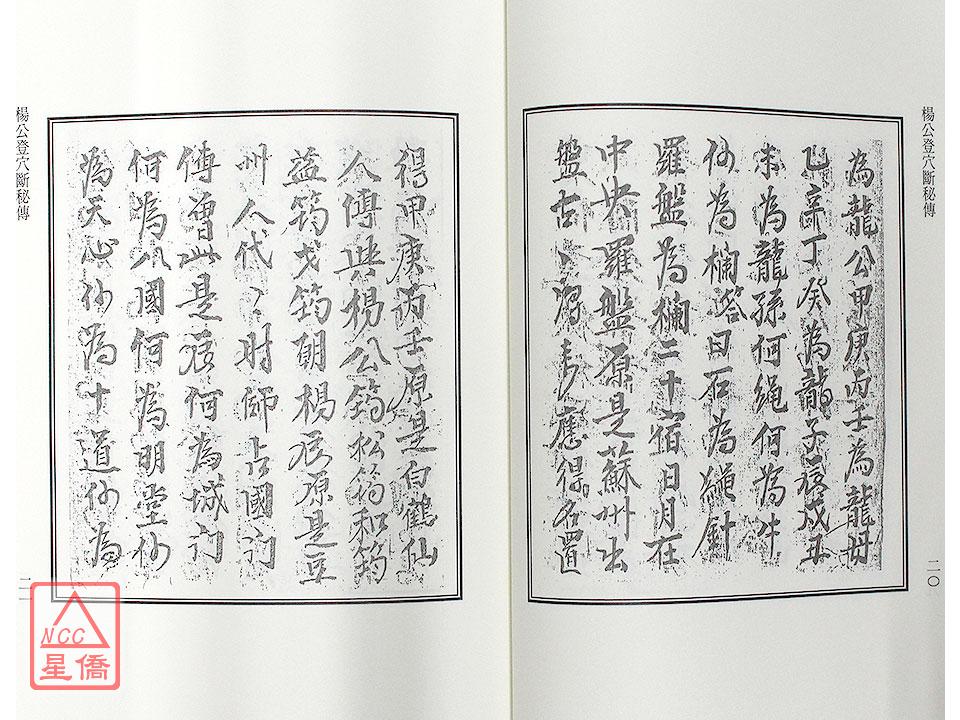 楊公登穴斷秘傳
二〇
為龍公甲庚丙壬為龍母
乙辛丁癸為龍子辰戌丑
未為龍孫何繩何為牛
何為欄答曰石為繩針
羅盤為欄二十宿日月在
中央羅盤原是蘇州出
盤古丶應得名置
得甲庚丙壬原是白鶴仙
人傳與楊公筠松筠和筠
益筠戈筠朗楊原是豆
州人代丶时師占國门
傳曾此是何為城门
何為八國何為明堂何
為天心何為十道何為
楊公登穴斷秘傳
NCC
星僑